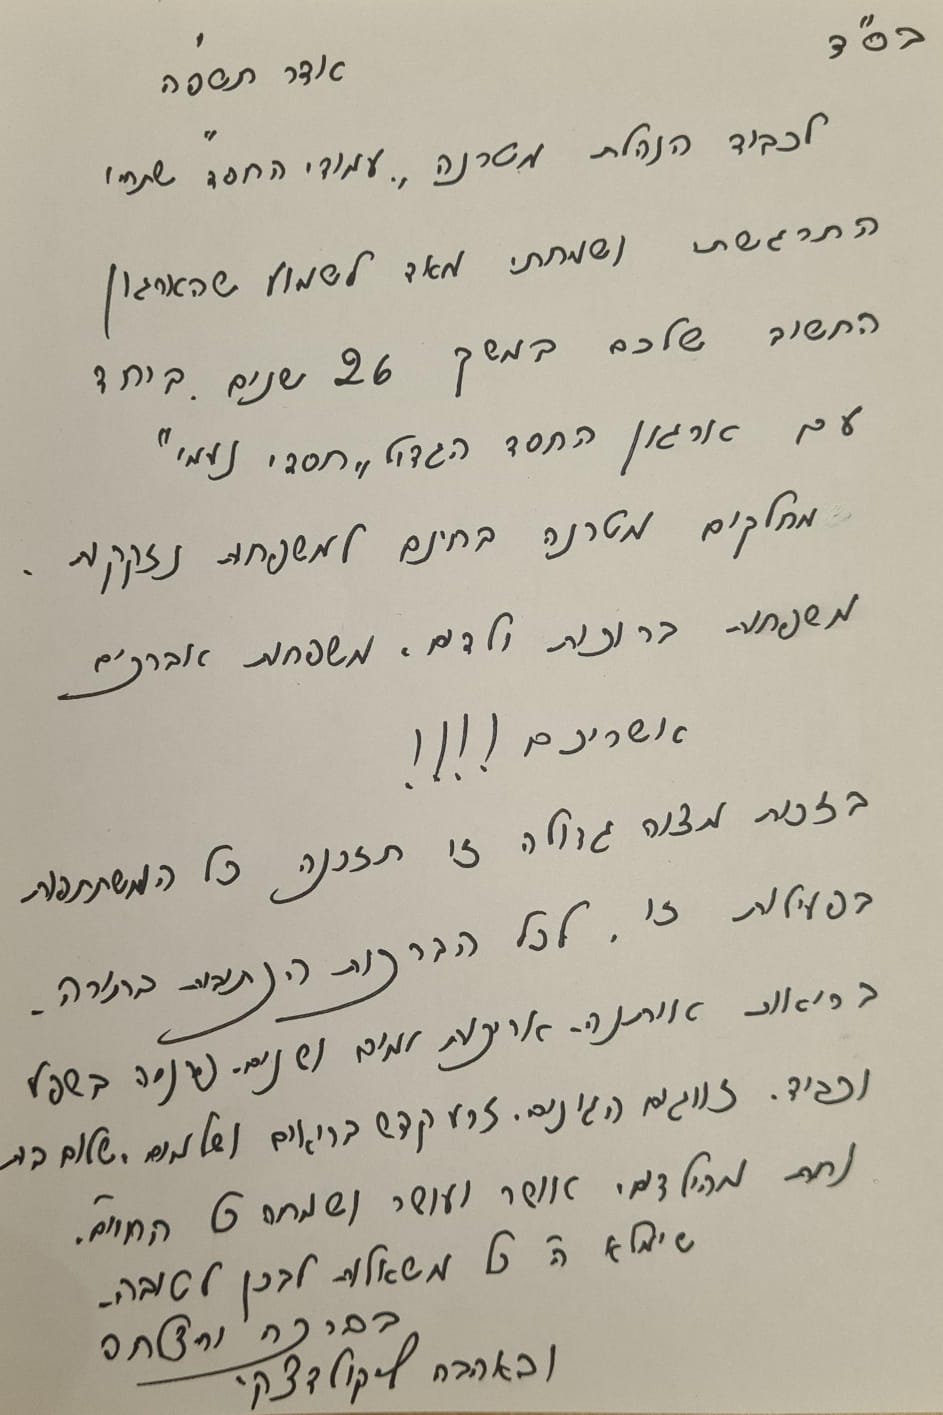 בס"ד
אדר תשפ'ה
לכבוד הנהלת מטרנה ,,עמודי החסד" שתחיו
התרגשתי ושמחתי מאד לשמוע שהארגון
החשוב שלכם במשך 26 שנים. ביחד
עם ארגון החסד הגדול ,,חסדי נעמי"
מחלקים מטרנה בחינם למשפחות נזקקות.
משפחות ברוכות ילדים. משפחות אברכים
אשריכם !!!!
בזכות מצוה גדולה זו תזכנה כל המשתתפות
בפעילות זו, לכל הברכות הכתובות בתורה.
בריאות איתנה- אריכות ימים ושנים- פרנסה בשפע
ובכבוד. זווגים הגונים. זרע קדש בריאים ושלמים. שלום בית
נחת מהילדים, אושר ועושר ושמחת החיים.
שימלא ה' כל משאלות לבכן לטובה-
בברכה והצלחה
ובאהבה